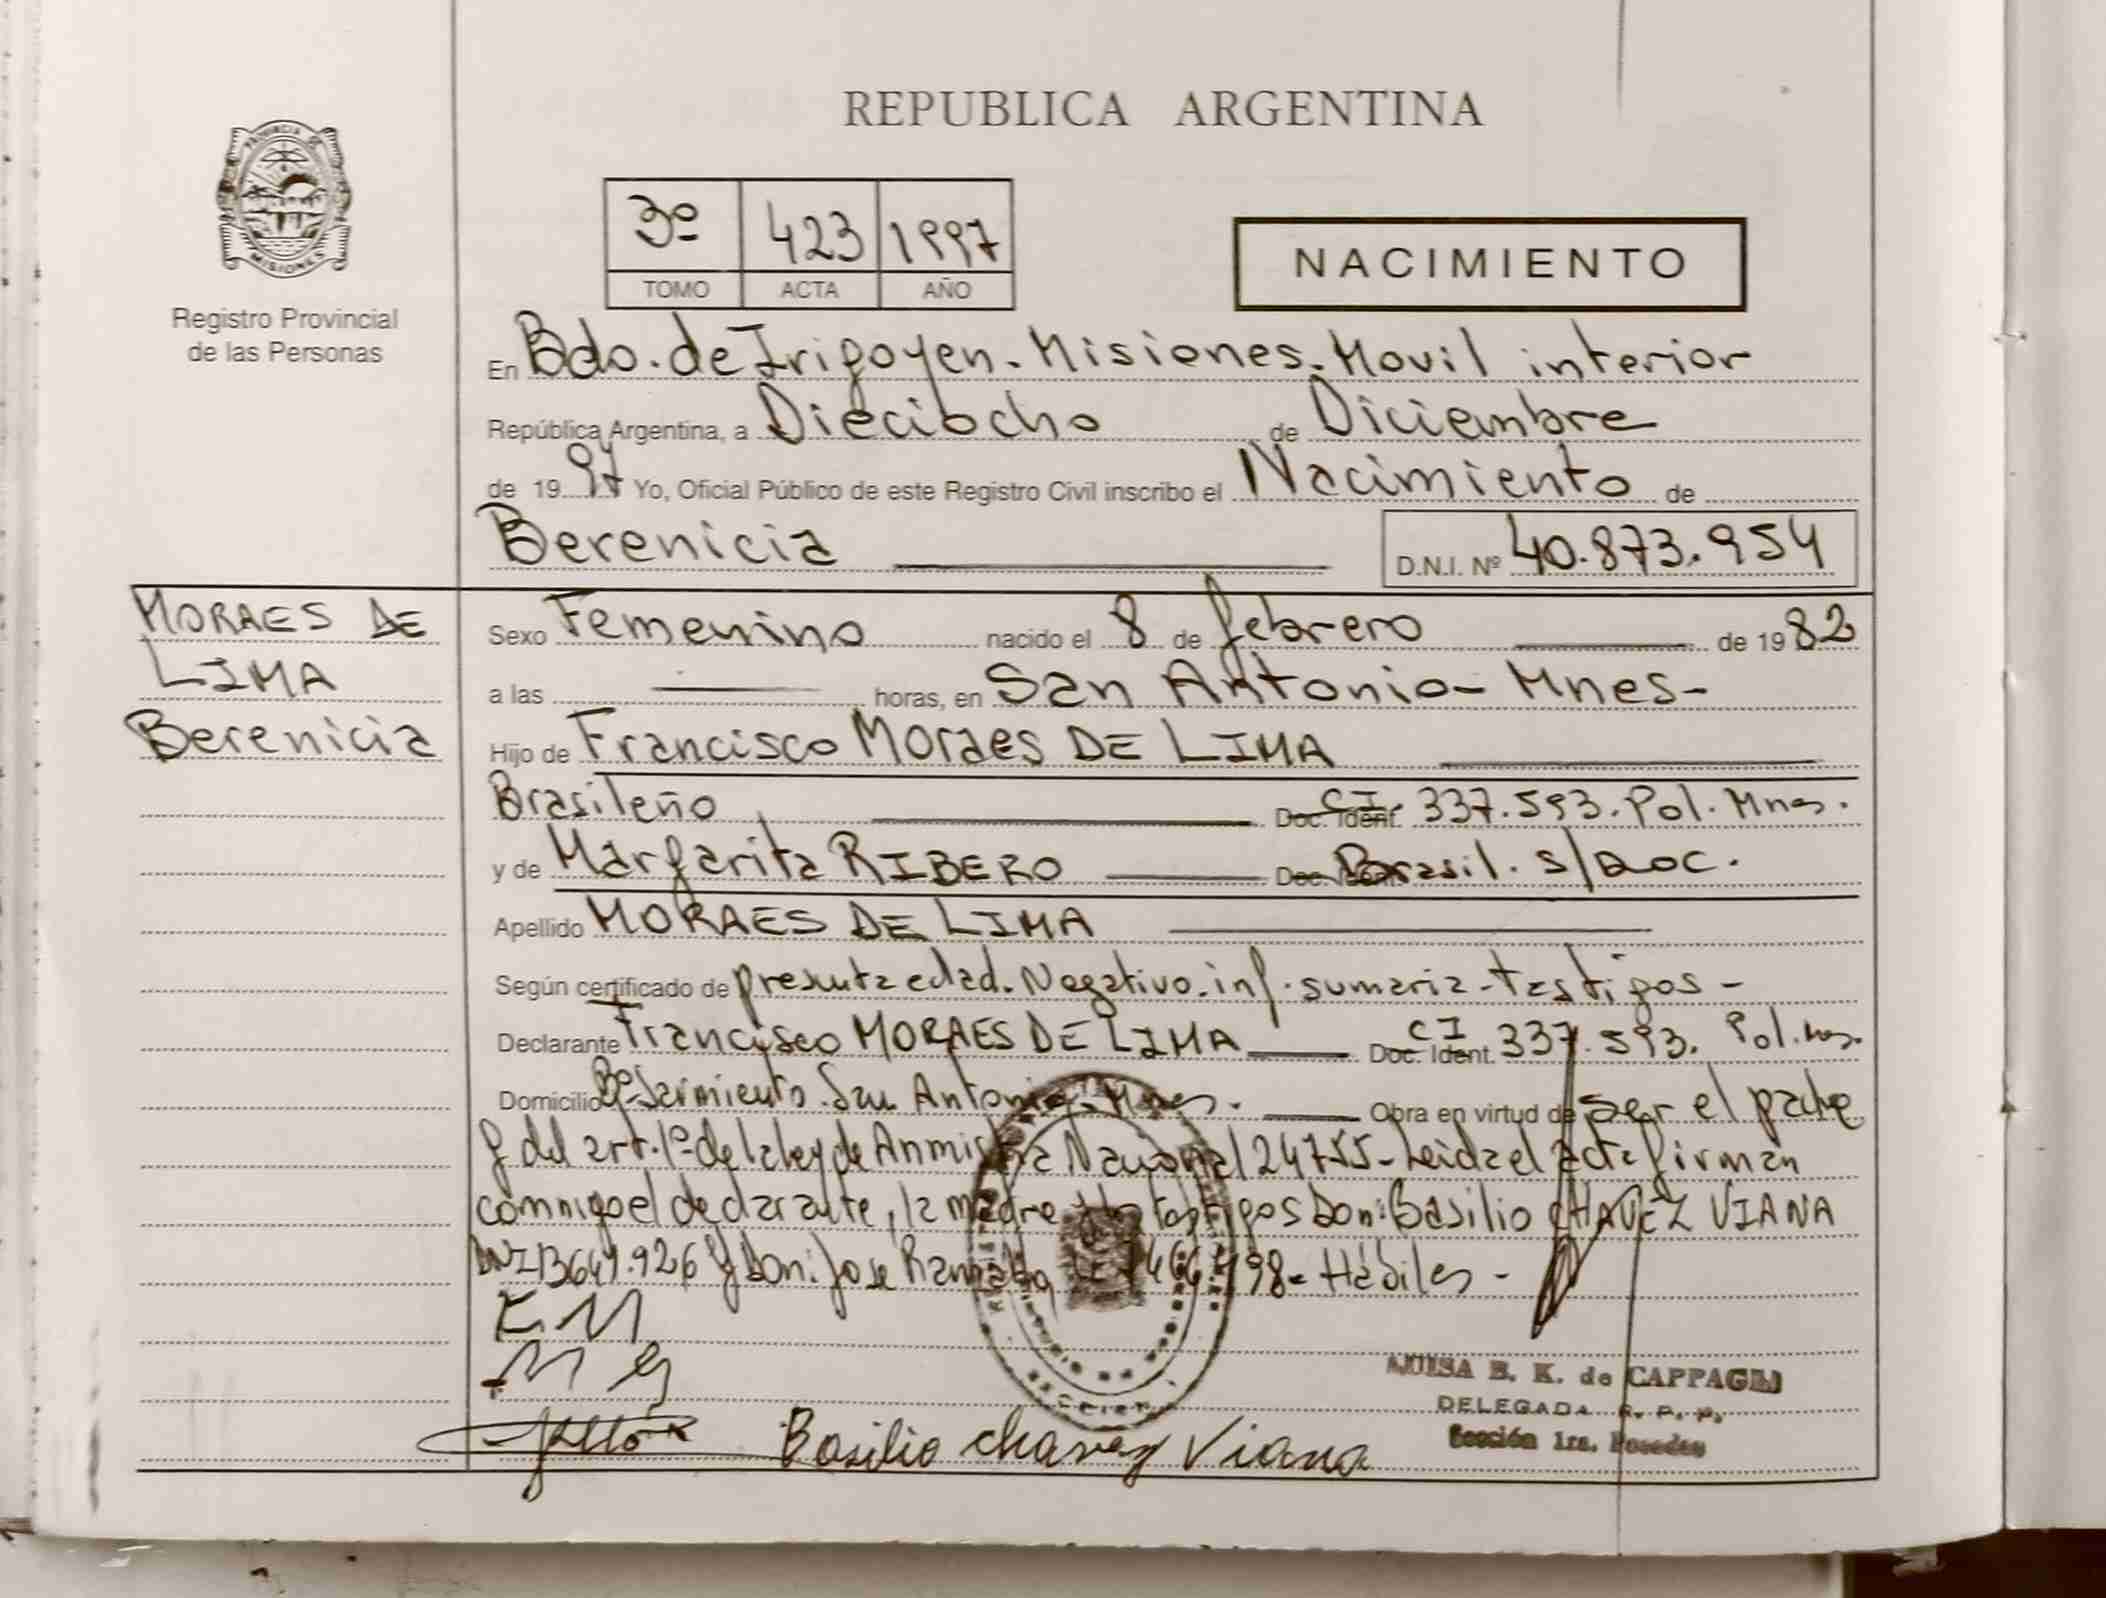 REPUBLICA ARGENTINA
PROVINCIA DE
MISIONES
Registro Provincial
de las Personas
3º 423 1997
TOMO ACTA AÑO
NACIMIENTO
En Bdo. de Irigoyen. Misiones. Movil interior
República Argentina, a Dieciocho de Diciembre
de 1997 Yo, Oficial Público de este Registro Civil inscribo el Nacimiento de
Berenicia D.N.I. Nº 40.873.954
MORAES DE
LIMA
Berenicia
Sexo Femenino nacido el 8 de febrero de 1982
a las horas, en San Antonio- Mnes-
Hijo de Francisco Moraes DE LIMA
Brasileño Doc. Ident. CI 337.593. Pol. Mnes.
y de Margarita RIBERO Brasil. s/Doc.
Apellido MORAES DE LIMA
Según certificado de presunta edad. Negativo. inf. sumaria - testigos -
Declarante Francisco MORAES DE LIMA Doc. Ident. CI 337.593. Pol.
Domicilio Bº Sarmiento. San Antonio. Mnes. Obra en virtud de ser el padre
y del art. 1º de la ley de Anmistia Nacional 24755- Leida el acta firman
conmigo el declarante, la madre testigos Don: Basilio CHAVEZ VIANA
DNI 13649.926 y Don: Jose 98- Hábiles -
Basilio chavez Viana
LUISA B. K. de CAPPAGLI
DELEGADA R. P. P.
Sección 1ra. Posadas